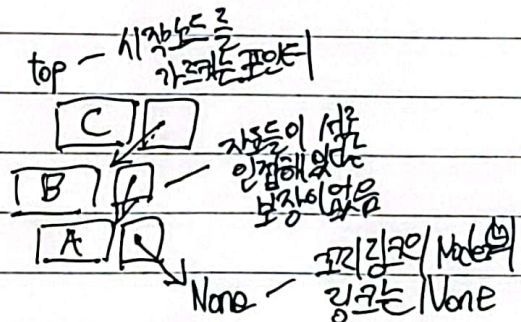 top - 시작노드를
가르키는 포인터
C
자료들이 서로
인접해있다는
보장이 없음
B
A
None - 꼬리 링크인 Node의
링크는 None